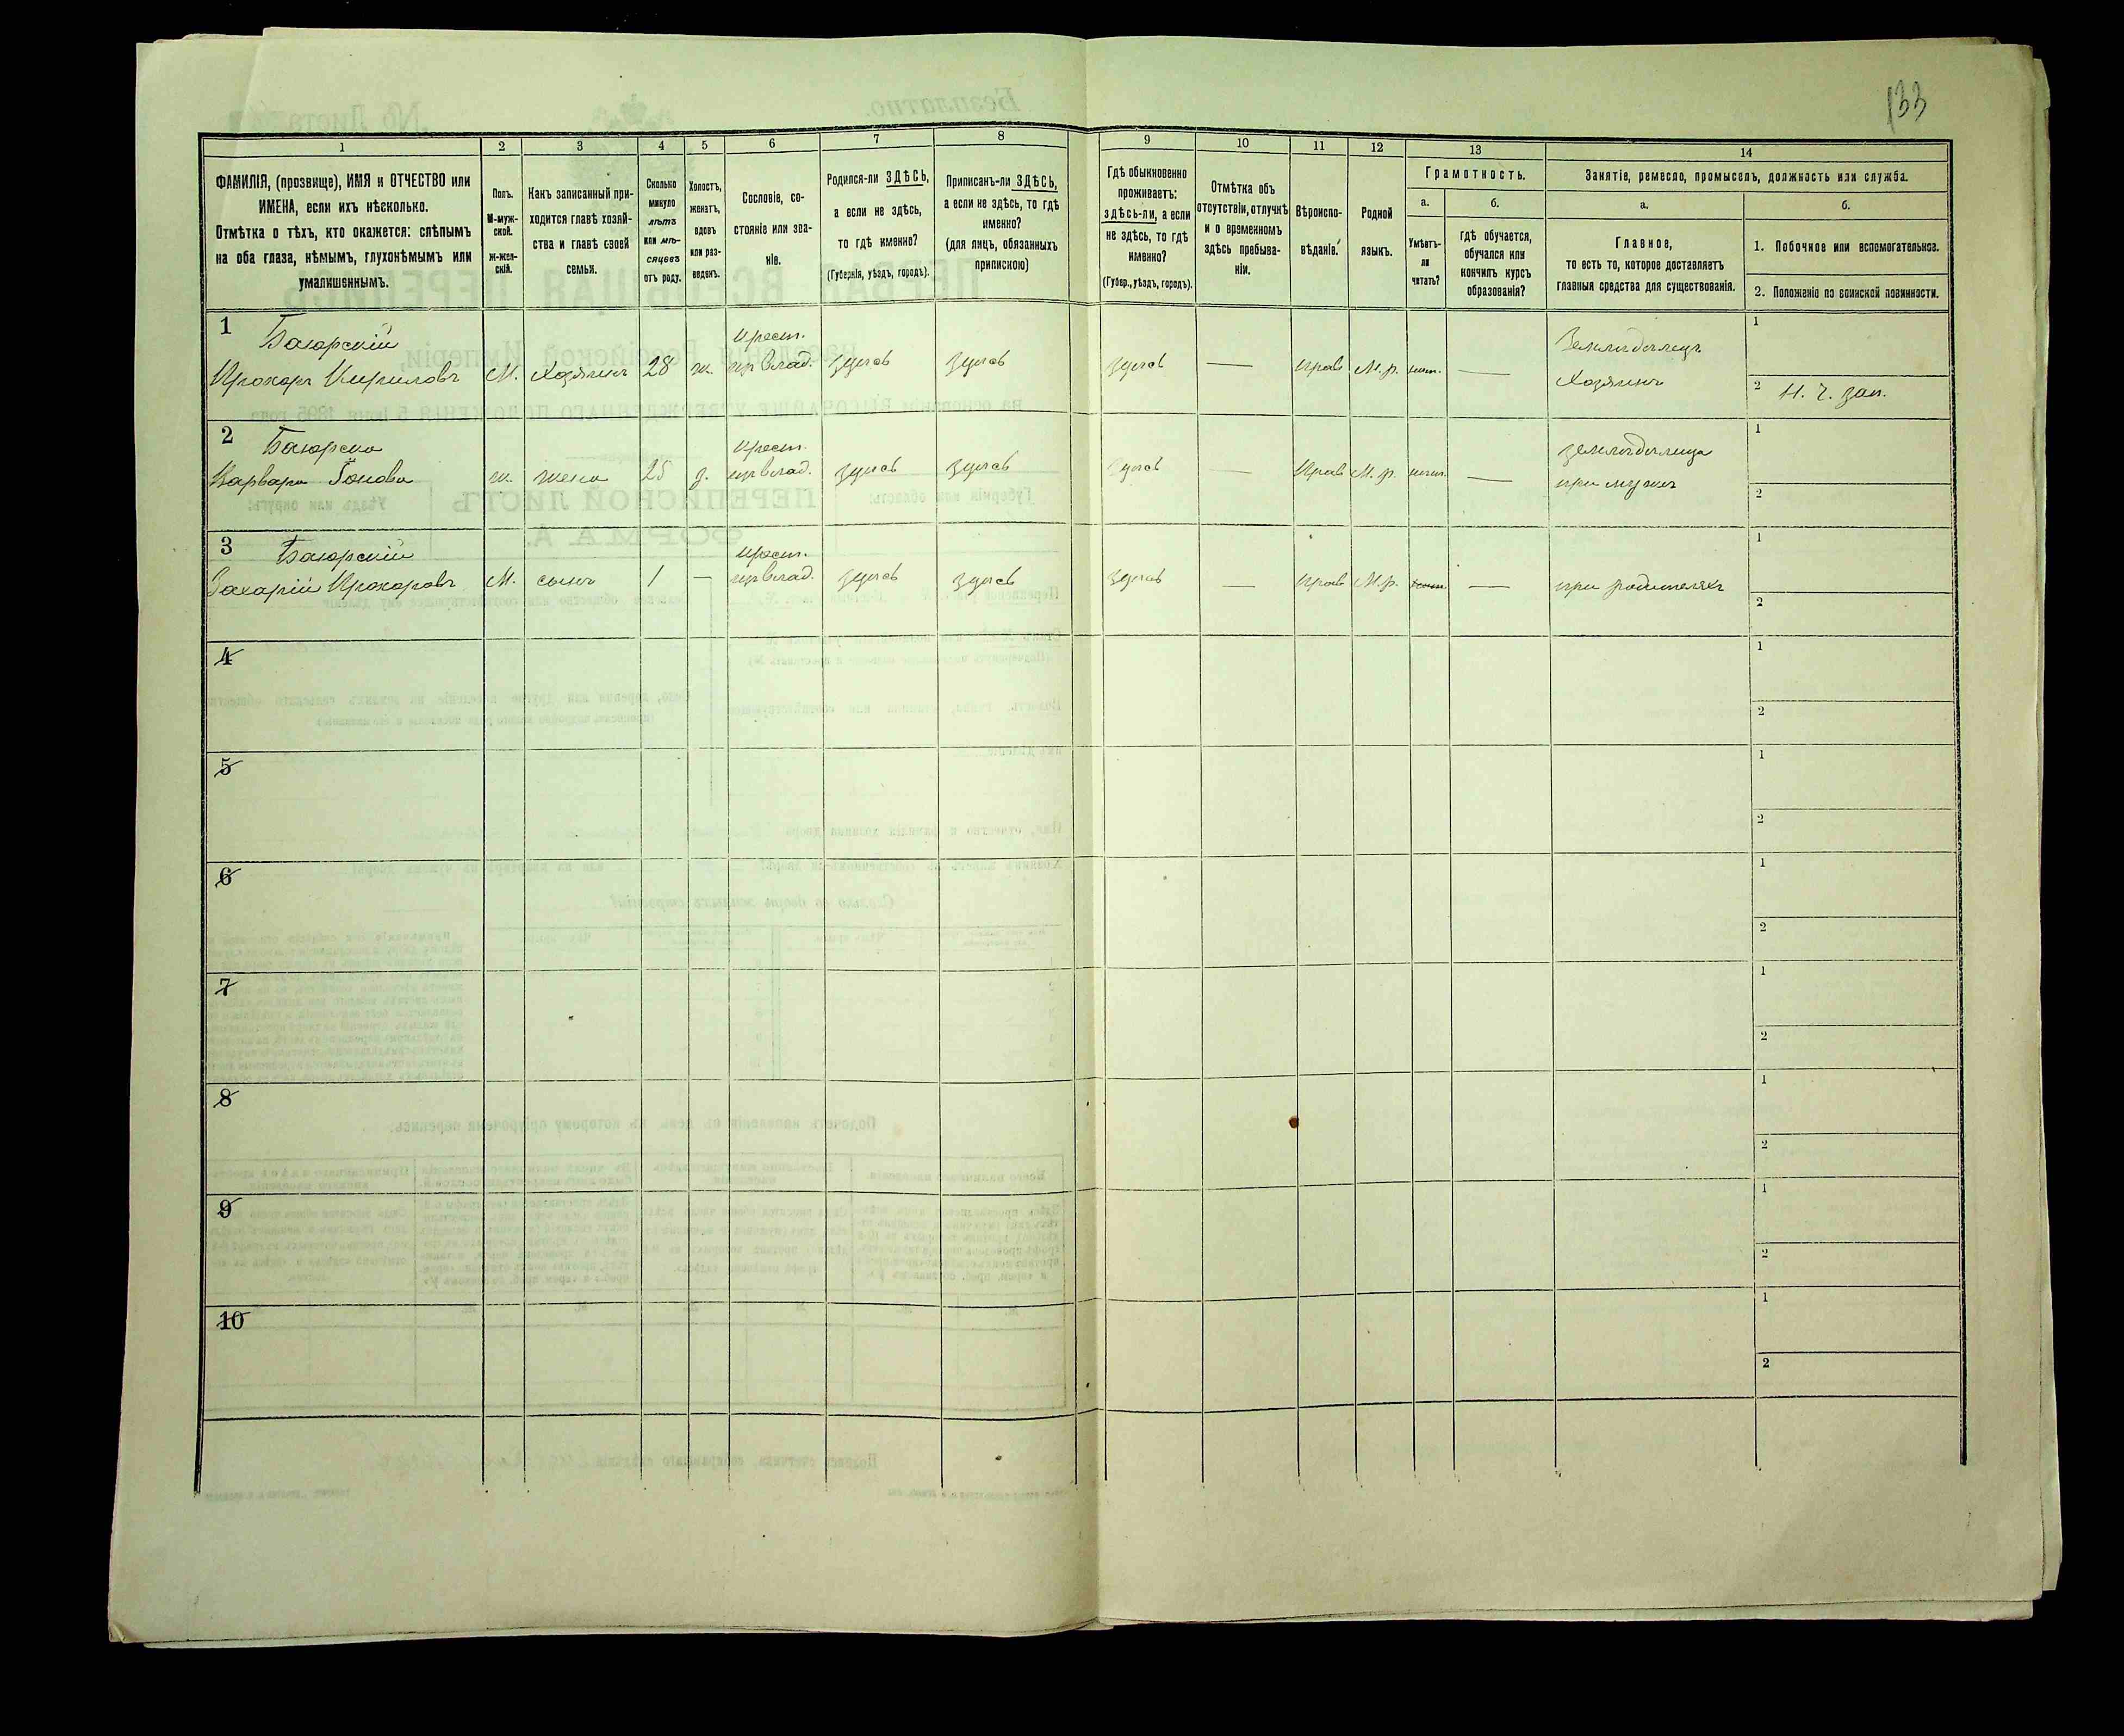 133
1 2 3 4 5 6 7 8 9 10 11 12 13 14
ФАМИЛІЯ, (прозвище), ИМЯ и ОТЧЕСТВО или
ИМЕНА, если ихъ нѣсколько.
Отмѣтка о тѣхъ, кто окажется: слѣпымъ
на оба глаза, нѣмымъ, глухонѣмымъ или
умалишеннымъ.
Полъ.
М-муж-
ской.
ж-жен-
скій.
Какъ записанный при-
ходится главѣ хозяй-
ства и главѣ своей
семьи.
Сколько
минуло
лѣтъ
или мѣ-
сяцевъ
отъ роду.
Холостъ,
женатъ,
вдовъ
или раз-
веденъ.
Сословіе, со-
стояніе или зва-
ніе.
Родился-ли ЗДѢСЬ,
а если не здѣсь,
то гдѣ именно?
(Губернія, уѣздъ, городъ).
Приписанъ-ли ЗДѢСЬ,
а если не здѣсь, то гдѣ
именно?
(для лицъ, обязанныхъ
припискою)
Гдѣ обыкновенно
проживаетъ:
здѣсь-ли, а если
не здѣсь, то гдѣ
именно?
(Губер., уѣздъ, городъ).
Отмѣтка объ
отсутствіи, отлучкѣ
и о временномъ
здѣсь пребыва-
ніи.
Вѣроиспо-
вѣданіе.
Родной
языкъ.
Грамотность.
а.
Умѣетъ-
ли
читать?
б.
гдѣ обучается,
обучался или
кончилъ курсъ
образованія?
Занятіе, ремесло, промыселъ, должность или служба.
а.
Главное,
то есть то, которое доставляетъ
главныя средства для существованія.
б.
1. Побочное или вспомогательное.
2. Положеніе по воинской повинности.
1
Прохоръ Кириловъ М. Хозяинъ 28 ж. крест. здѣсь здѣсь здѣсь — прав М.р. — Земледѣлецъ
Хозяинъ
1
2
2
Варвара ж. жена 25 з. крест. здѣсь здѣсь здѣсь — прав М.р. — земледѣлица
при мужѣ
1
2
3
Захарій Прохоровъ М. сынъ 1 — крест. здѣсь здѣсь здѣсь — прав М.р. — при родителяхъ
1
2
4
1
2
5
1
2
6
1
2
7
1
2
8
1
2
9
1
2
10
1
2